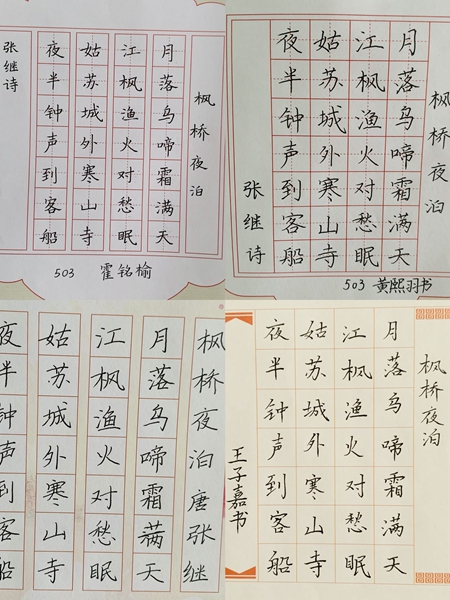 枫桥夜泊
月落乌啼霜满天
江枫渔火对愁眠
姑苏城外寒山寺
夜半钟声到客船
张继诗
503 霍铭榆
枫桥夜泊
月落乌啼霜满天
江枫渔火对愁眠
姑苏城外寒山寺
夜半钟声到客船
张继诗
503 黄熙羽书
枫桥夜泊唐张继
月落乌啼霜满天
江枫渔火对愁眠
姑苏城外寒山寺
夜半钟声到客船
枫桥夜泊
月落乌啼霜满天
江枫渔火对愁眠
姑苏城外寒山寺
夜半钟声到客船
王子嘉书